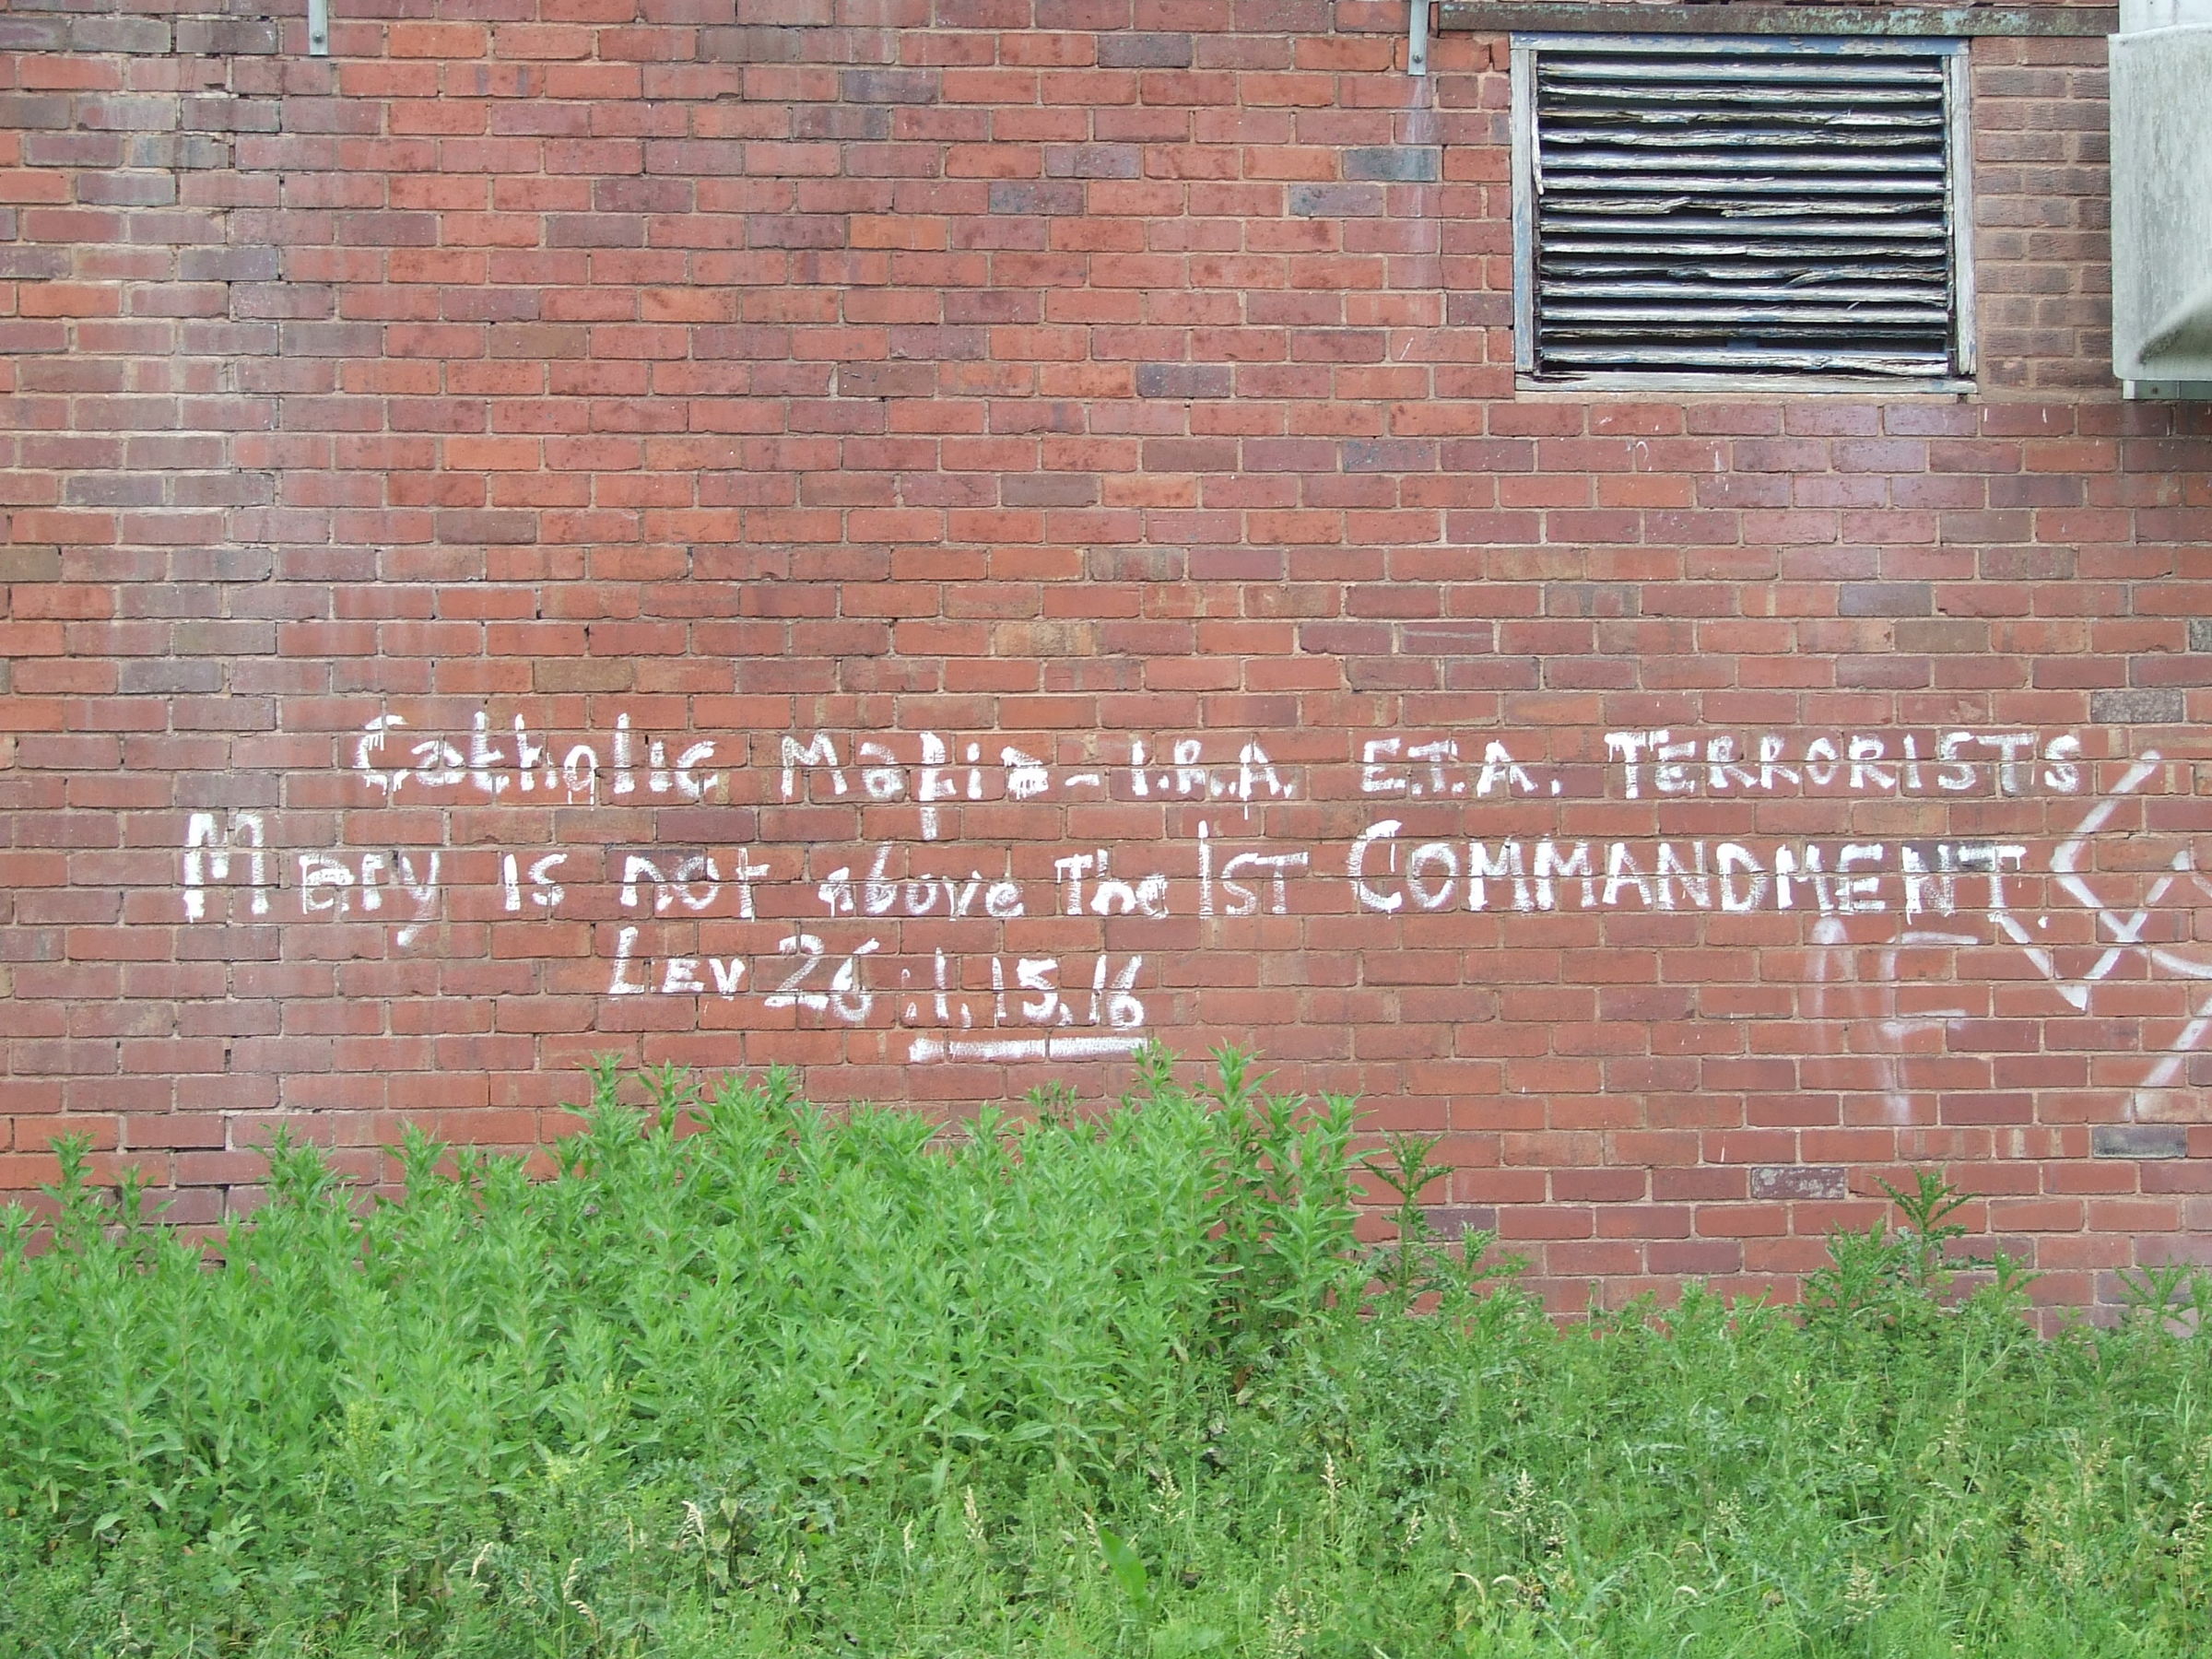 Catholic Mafia - I.R.A. E.T.A. TERRORISTS
Mary is not above The 1ST COMMANDMENT
LEV 26:1,15,16